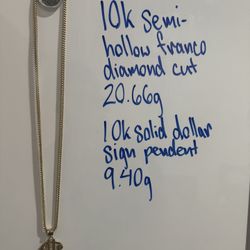 10k Semi-
hollow franco
diamond cut
20.66g
10k solid dollar
sign pendent
9.40g